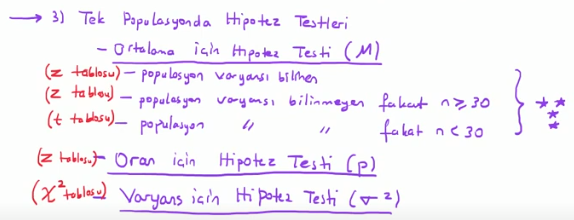 → 3) Tek Populasyonda Hipotez Testleri
- Ortalama için Hipotez Testi (M)
(z tablosu) - populasyon varyansı bilinen
(z tablosu) - populasyon varyansı bilinmeyen fakat n ≥ 30
(t tablosu) - populasyon " " fakat n < 30
(z tablosu) - Oran için Hipotez Testi (p)
(χ² tablosu) - Varyans için Hipotez Testi (σ²)